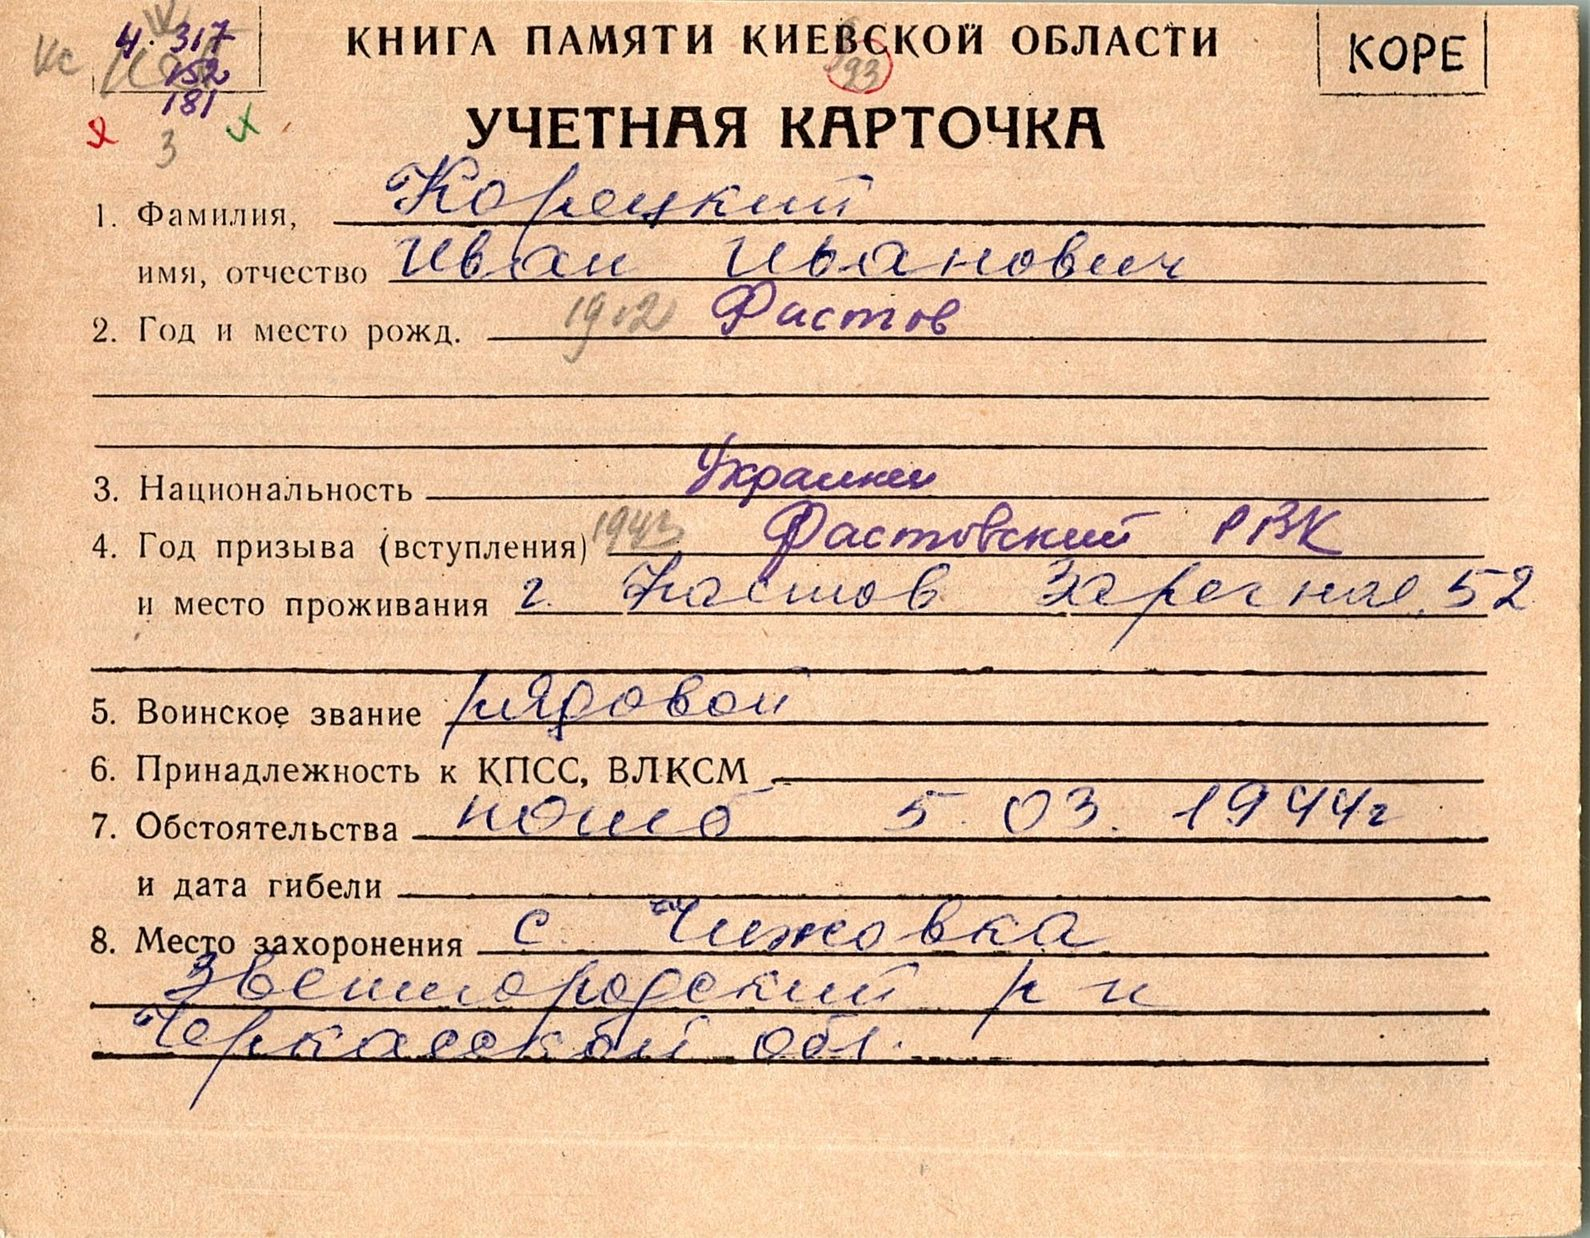 Кс 4. 317
152
181
3
КНИГА ПАМЯТИ КИЕВСКОЙ ОБЛАСТИ
93
КОРЕ
УЧЕТНАЯ КАРТОЧКА
1. Фамилия, Корецкий
имя, отчество Иван Иванович
2. Год и место рожд. 1912 Фастов
3. Национальность Украинец
4. Год призыва (вступления) 1943 Фастовский РВК
и место проживания г. Фастов Заречная, 52
5. Воинское звание рядовой
6. Принадлежность к КПСС, ВЛКСМ
7. Обстоятельства погиб 5.03.1944г
и дата гибели
8. Место захоронения с. Чижовка
Звенигородский р н
Черкасской обл.